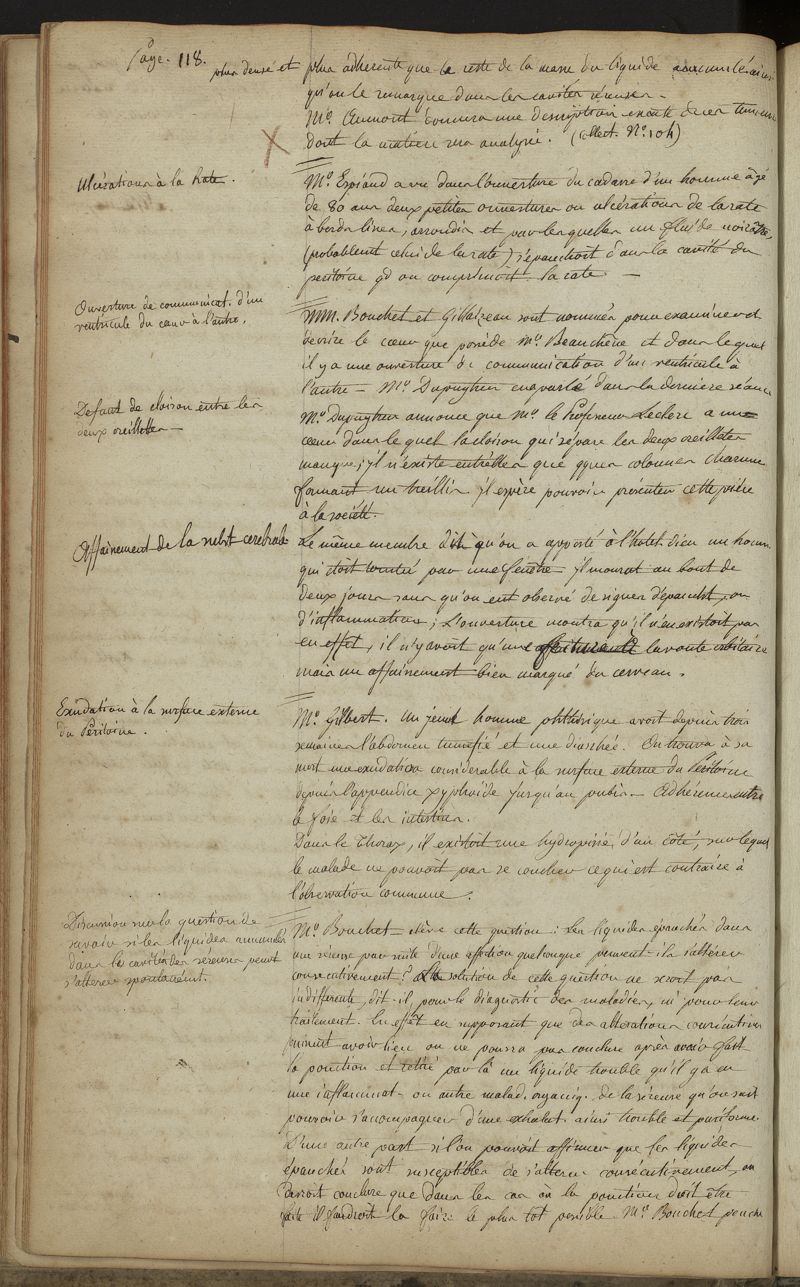 Page. 118.
plus dense et plus adherente que le reste de la masse du liquide accumulé ainsi
qu'on le remarque dans les cavités séreuses.
Mr. Cuumont donnera une description exacte de ces tumeurs
dont la matière sera analysé. (Collect. No. 104)
Ulcérations à la Rate.
Mr. Espiaud a vu dans l'ouverture du cadavre d'un homme âgé
de 80 ans deux petites ouvertures ou ulcérations de la rate
à bords lisses, arrondis et par lesquelles un fluide noirâtre,
(probablemt celui de la rate) s'épanchoit dans la cavité du
peritoine qd on comprimoit la rate —
Ouverture de communicat. d'un
ventricule du cœur à l'autre.
MM. Bouchet et Gillaizeau sont nommés pour examiner et
décrire le cœur que possède Mr. Beauchêne et dans lequel
il y a une ouverture de communication d'un ventricule à
l'autre — Mr. Dupuytren en a parlé dans la derniere séance
Defaut de cloison entre les
deux oreillettes —
Mr. Dupuytren annonce que Mr. le Professeur Leclerc a un
cœur dans le quel la cloison qui sépare les deux oreillettes
manque; il n'existe entr'elles que qques colonnes charnues
formant un treillis. il espère pouvoir présenter cette pièce
à la société.
Affaissement de la subst cerebrale
Le même membre dit qu'on a apporté à l'hotel dieu un homme
qui étoit tombé par une fenêtre — il mourut au bout de
deux jours sans qu'on eut observé de signes d'épanchemt, ou
d'inflammation; L'ouverture montra qu'il n'en existoit pas
en effet, il n'y avoit qu'une la voute orbitaire
mais un affaissement bien marqué du cerveau.
Exudation à la surface externe
du Péritoine.
Mr. Gilbert. Un jeune homme phthisique avoit depuis trois
semaines l'abdomen tuméfié et une diarrhée. On trouva à sa
mort une exudation considerable à la surface externe du Péritoine
depuis l'appendice xyphoide jusqu'au pubis — Adhérences entre
le foie et les intestins.
Dans le Thorax, il existoit une hydropisie d'un côté, sur lequel
le malade ne pouvoit pas se coucher ce qui est contraire à
l'observation commune.
Discussion sur la question de
savoir si les liquides accumulés
dans les cavités des séreuses peuvt
s'altérer spontanémt.
Mr. Bouchet élève cette question : Les liquides épanchés dans
une séreuse par suite d'une affection quelconque peuvent-ils s'altérer
consecutivement? La solution de cette question ne seroit pas
indifferente, dit-il, pour le diagnostic des maladies, ni pour leur
traitement. En effet en supposant que des altérations consécutives
puissent avoir lieu on ne pourra pas conclure après avoir fait
la ponction et retiré par là un liquide trouble qu'il y a eu
une inflammat- ou autre malad. organiq. de la séreuse qu'on sait
pouvoir s'accompagner d'une exhalat. ainsi trouble et puriforme.
D'une autre part si l'on pouvoit affirmer que les liquides
épanchés sont susceptibles de s'alterer consécutivement, on
devroit conclure que dans les cas où la ponction doit être
faite il faudroit la faire le plus tot possible. Mr. Bouchet penche